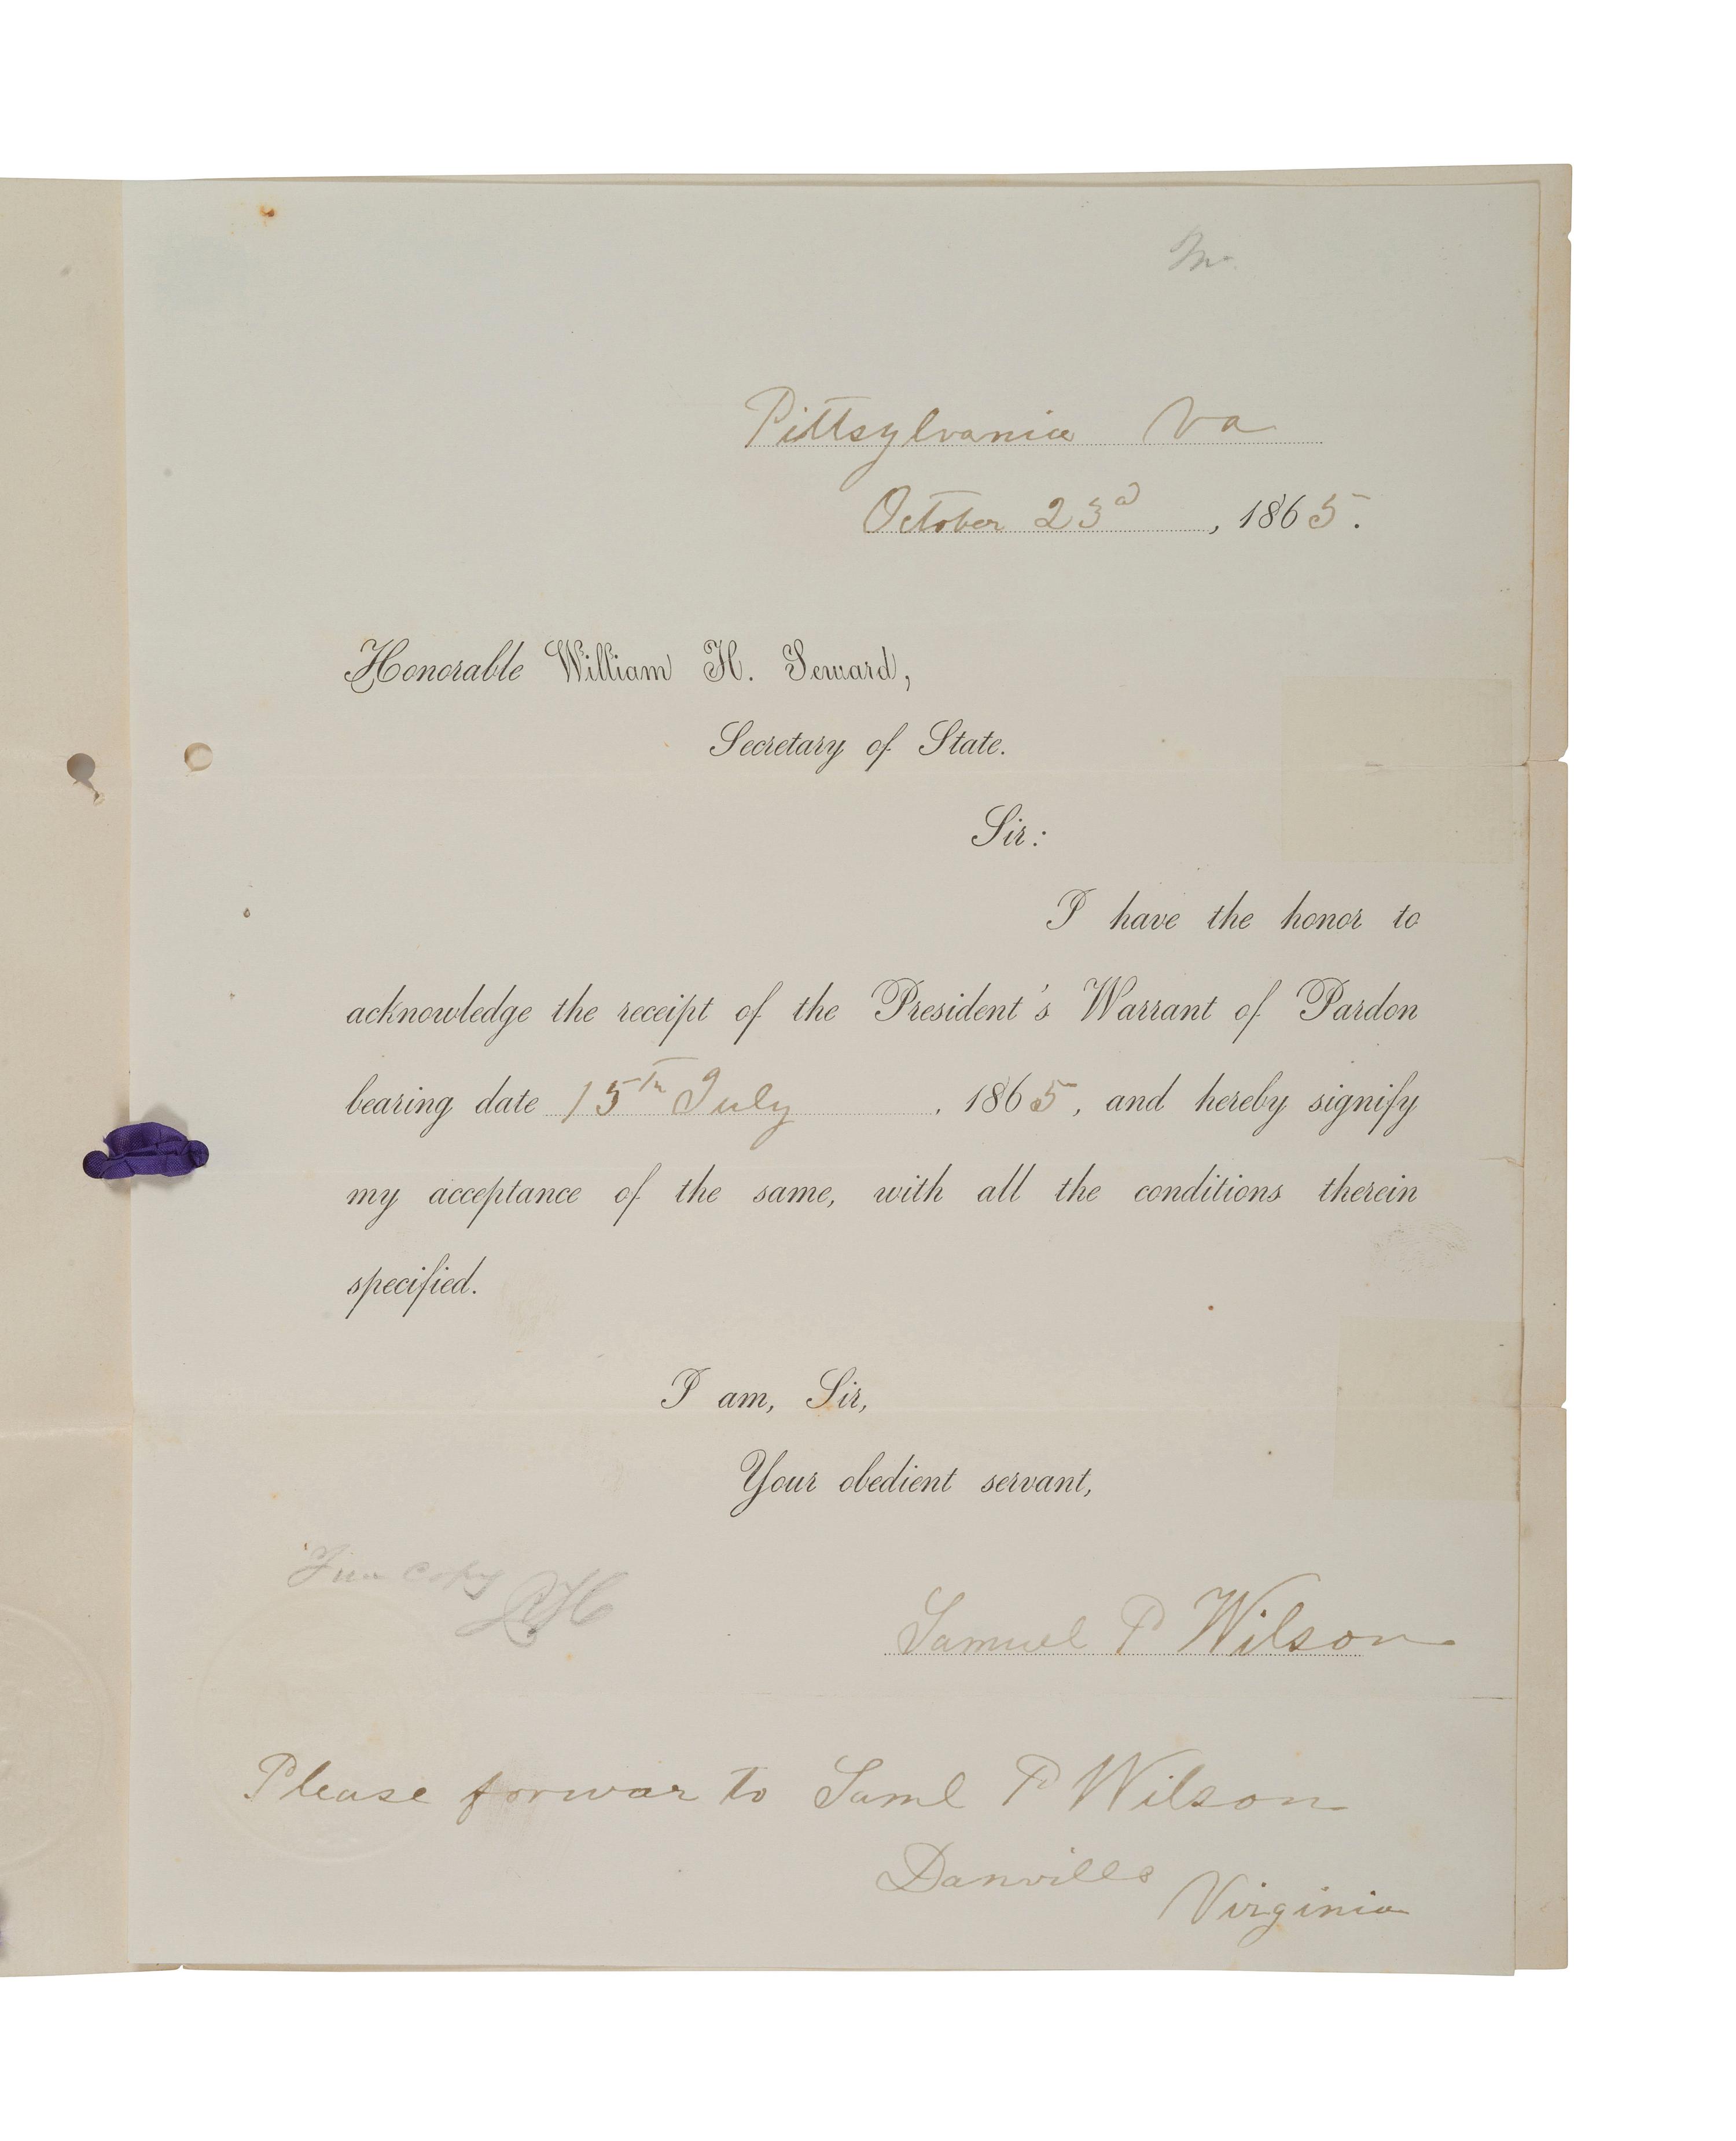 Pittsylvania Va
October 23d, 1865.
Honorable William H. Seward,
Secretary of State.
Sir:
I have the honor to
acknowledge the receipt of the President's Warrant of Pardon
bearing date 15th July, 1865, and hereby signify
my acceptance of the same, with all the conditions therein
specified.
I am, Sir,
Your obedient servant,
copy
Samuel P Wilson
Please forwar to Saml P Wilson
Danville
Virginia